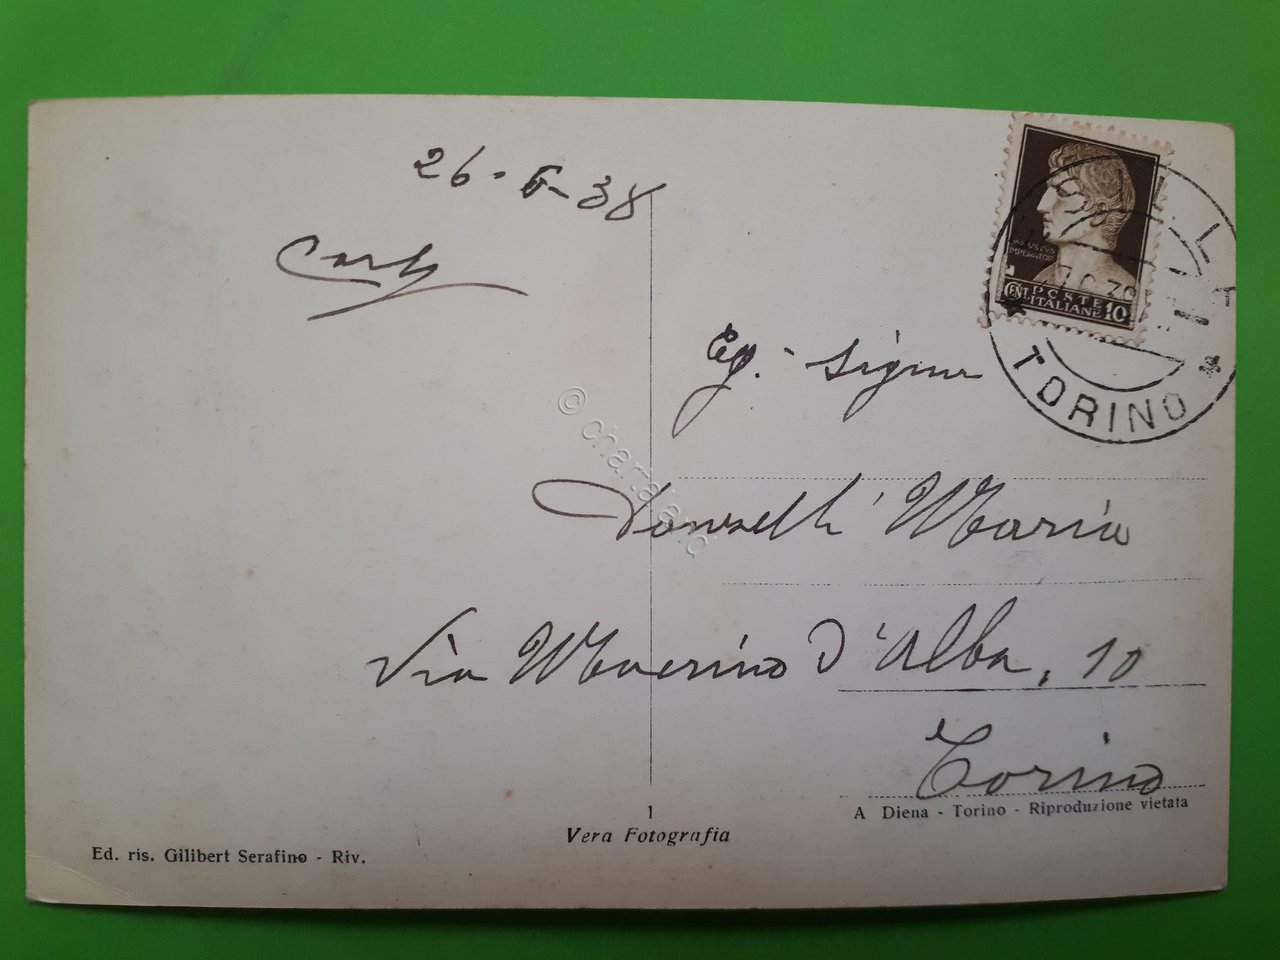 26-6-38
Carlo
Eg. Signor
Donzelli Maria
Via Macrino D'Alba, 10
Torino
AVGVSTVS
IMPERATOR
POSTE
ITALIANE
CENT 10
TORINO
© chartaland
1
Vera Fotografia
A Diena - Torino - Riproduzione vietata
Ed. ris. Gilibert Serafino - Riv.